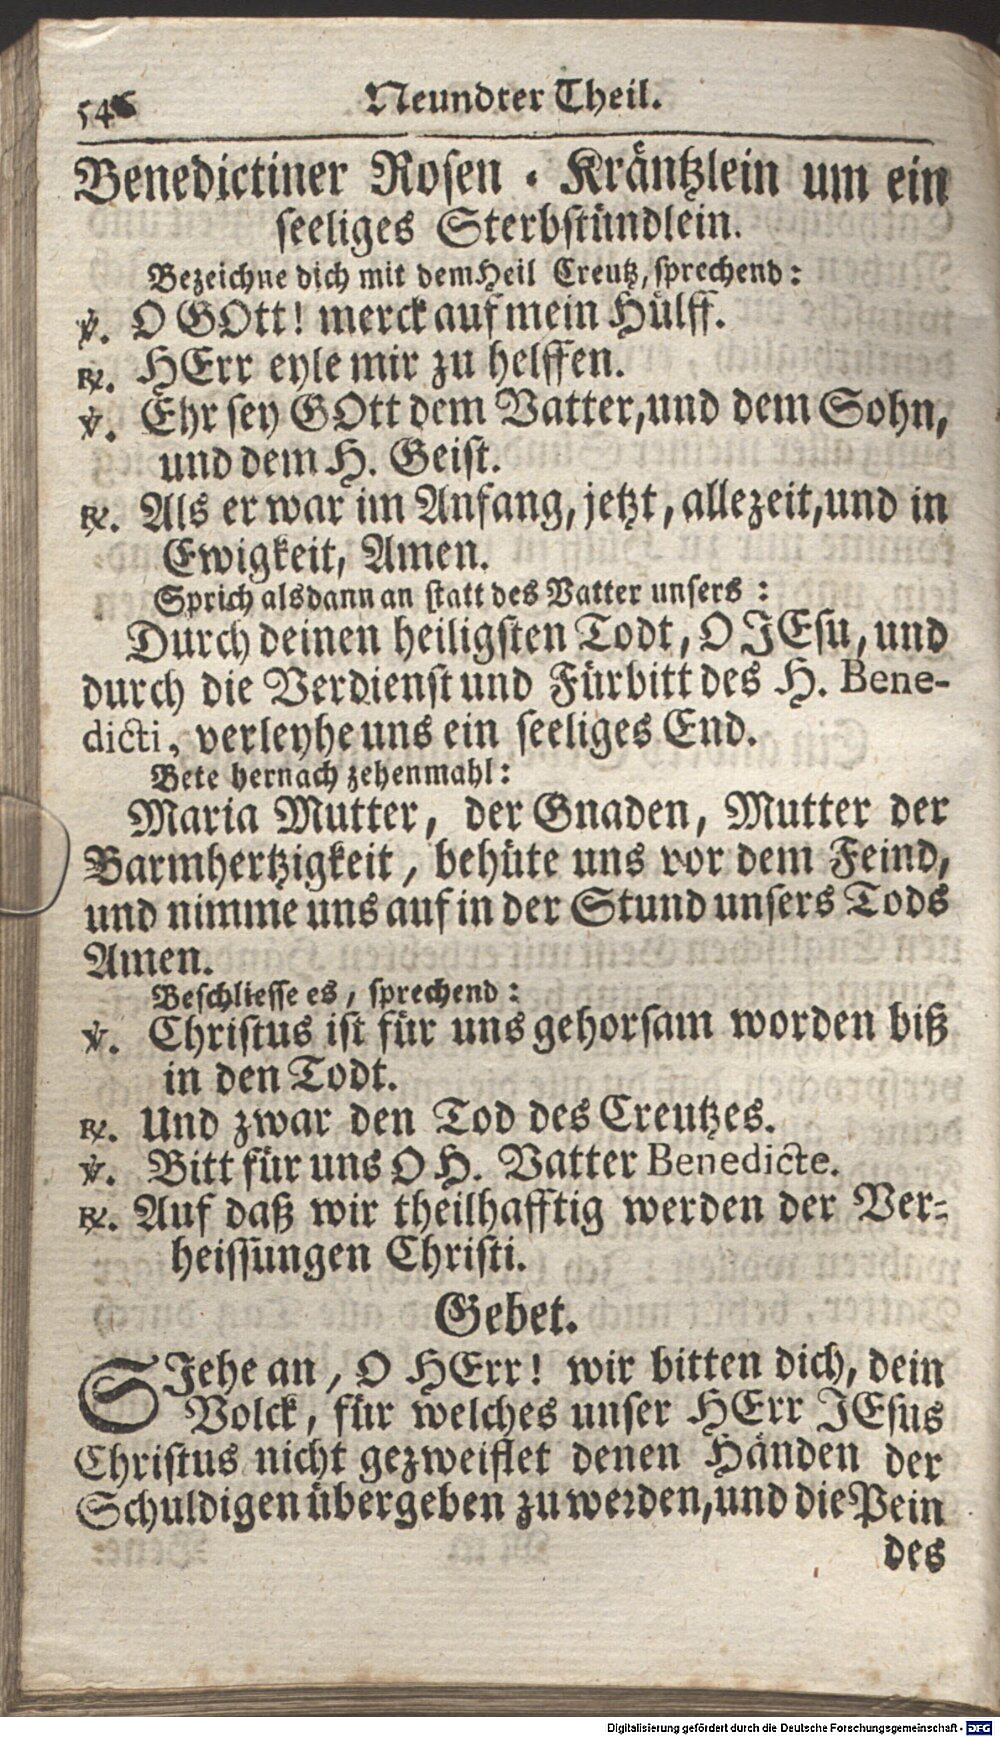 546 Neundter Theil.
Benedictiner Rosen-Kräntzlein um ein
seeliges Sterbstündlein.
Bezeichne dich mit dem Heil Creutz, sprechend:
℣. O GOtt! merck auf mein Hülff.
℟. HErr eyle mir zu helffen.
℣. Ehr sey GOtt dem Vatter, und dem Sohn,
und dem H. Geist.
℟. Als er war im Anfang, jetzt, allezeit, und in
Ewigkeit, Amen.
Sprich alsdann an statt des Vatter unsers:
Durch deinen heiligsten Todt, O JEsu, und
durch die Verdienst und Fürbitt des H. Bene-
dicti, verleyhe uns ein seeliges End.
Bete hernach zehenmahl:
Maria Mutter, der Gnaden, Mutter der
Barmhertzigkeit, behüte uns vor dem Feind,
und nimme uns auf in der Stund unsers Tods
Amen.
Beschliesse es, sprechend:
℣. Christus ist für uns gehorsam worden biß
in den Todt.
℟. Und zwar den Tod des Creutzes.
℣. Bitt für uns O H. Vatter Benedicte.
℟. Auf daß wir theilhafftig werden der Ver-
heissungen Christi.
Gebet.
SJehe an, O HErr! wir bitten dich, dein
Volck, für welches unser HErr JEsus
Christus nicht gezweiflet denen Händen der
Schuldigen übergeben zu werden, und die Pein
des
Digitalisierung gefördert durch die Deutsche Forschungsgemeinschaft - DFG